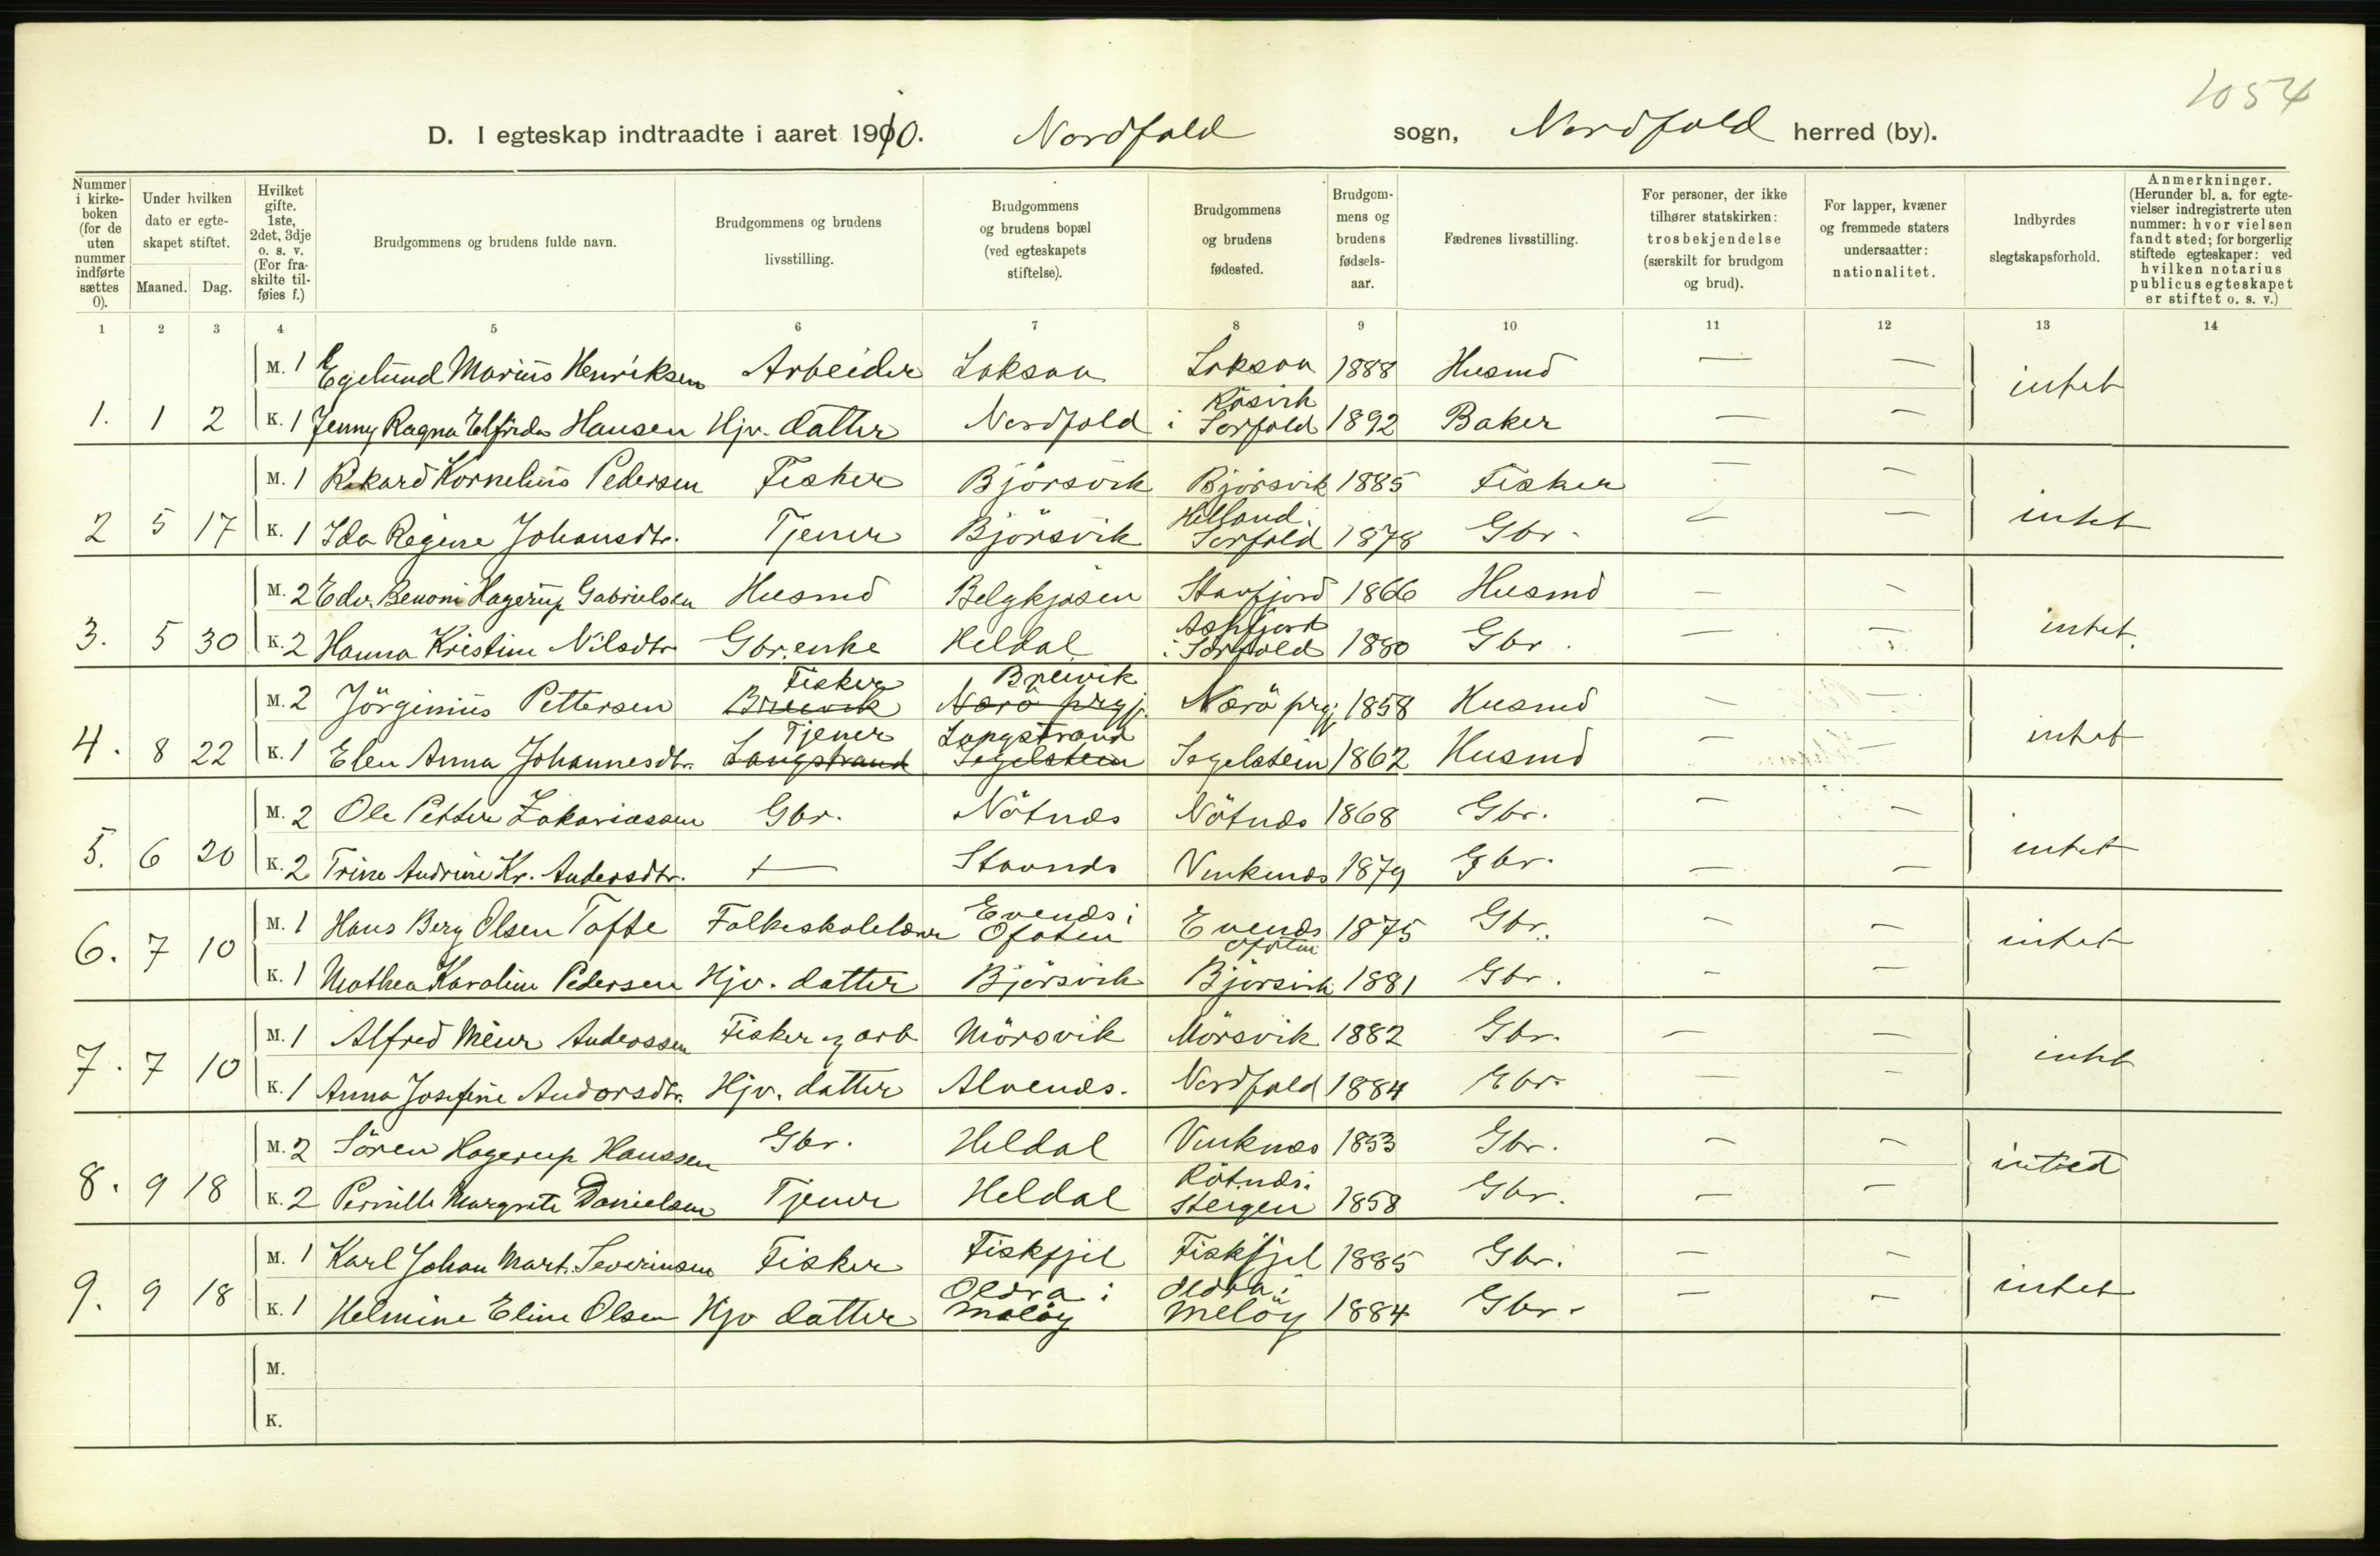 1054
D. I egteskap indtraadte i aaret 1910. Nordfold sogn, Nordfold herred (by).
Nummer i kirkeboken (for de uten nummer indførte sættes 0).
Under hvilken dato er egteskapet stiftet.
Maaned. Dag.
Hvilket gifte. 1ste, 2det, 3dje o. s. v. (For fraskilte tilføies f.)
Brudgommens og brudens fulde navn.
Brudgommens og brudens livsstilling.
Brudgommens og brudens bopæl (ved egteskapets stiftelse).
Brudgommens og brudens fødested.
Brudgommens og brudens fødselsaar.
Fædrenes livsstilling.
For personer, der ikke tilhører statskirken: trosbekjendelse (særskilt for brudgom og brud).
For lapper, kvæner og fremmede staters undersaatter: nationalitet.
Indbyrdes slegtskapsforhold.
Anmerkninger. (Herunder bl. a. for egtevielser indregistrerte uten nummer: hvor vielsen fandt sted; for borgerlig stiftede egteskaper: ved hvilken notarius publicus egteskapet er stiftet o. s. v.)
1 2 3 4 5 6 7 8 9 10 11 12 13 14
M. 1 Egelund Marius Henriksen Arbeider Laksaa Laksaa 1888 Husmd — — intet
1. 1 2 K. 1 Jenny Ragna Elfrida Hansen Hjv. datter Nordfold Røsvik i Sørfold 1892 Baker — —
M. 1 Rikard Kornelius Pedersen Fisker Björsvik Björsvik 1885 Fisker — —
2 5 17 K. 1 Ida Regine Johansdtr. Tjener Björsvik Helland i Sørfold 1878 Gbr. — — intet
M. 2 Edv. Benoni Hagerup Gabrielsen Husmd Belgkjosen Storfjord 1866 Husmd — —
3. 5 30 K. 2 Hanna Kristine Nilsdtr Gbr. enke Heldal Aspfjord i Sørfold 1880 Gbr. — — intet.
M. 2 Jörginius Pettersen Fisker Breivik Breivik Nærö prgj. Nærö prgj 1858 Husmd — —
4. 8 22 K. 1 Elen Anna Johannesdtr. Tjener Langstrand Langstrand Segelstein Segelstein 1862 Husmd — — intet
M. 2 Ole Petter Zakariassen Gbr. Nötnæs Nötnæs 1868 Gbr. — —
5. 6 20 K. 2 Trine Andrine Kr. Andersdtr. + — Stavnæs Vinkenæs 1879 Gbr. — — intet
M. 1 Hans Berg Olsen Tofte Folkeskolelærer Evenæs i Ofoten Evenæs Ofoten 1875 Gbr. — —
6. 7 10 K. 1 Mathea Karoline Pedersen Hjv. datter Björsvik Björsvik 1881 Gbr. — — intet
M. 1 Alfred Meier Anderssen Fisker og arb Mörsvik Mörsvik 1882 Gbr. — —
7. 7 10 K. 1 Anna Josefine Andorsdtr. Hjv. datter Alvenæs. Nordfold 1884 Gbr. — — intet
M. 2 Sören Hagerup Hanssen Gbr. Heldal Vinknæs 1853 Gbr. — —
8. 9 18 K. 2 Pernille Margrete Danielsen Tjener Heldal Rötnæs i Steigen 1858 Gbr. — — intet
M. 1 Karl Johan Mart. Severinsen Fisker Fiskfjel Fiskfjel 1885 Gbr. — —
9. 9 18 K. 1 Helmine Eline Olsen Hjv datter Oldra i Meløy Oldra i Meløy 1884 Gbr. — — intet
M.
K.